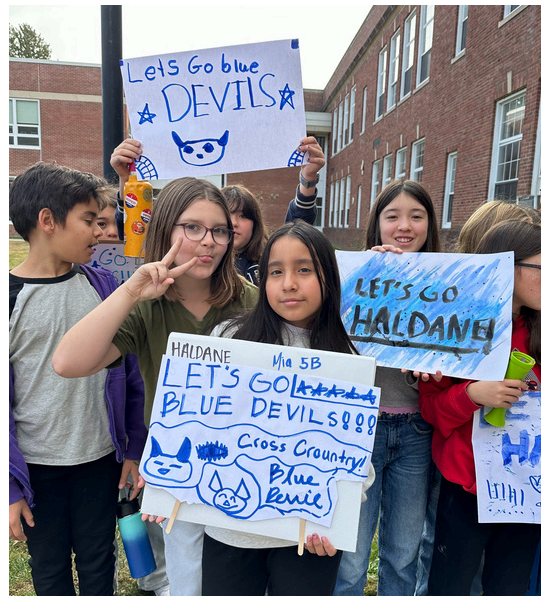 Lets Go blue
DEVILS
GO B
LET'S GO
HALDANE!
HALDANE
Mia 5B
LET'S GO!
BLUE DEVILS!!!
Cross Crountry!
Blue
Berrie
HA